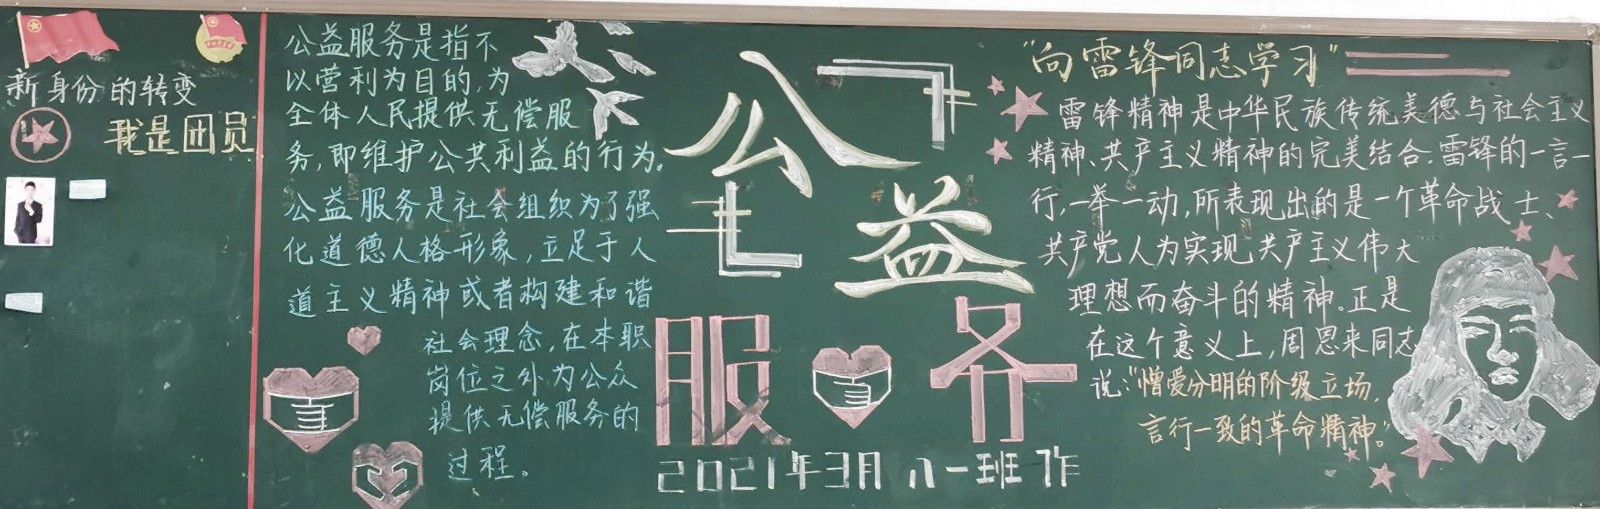 新身份的转变
我是团员
公益服务是指不
以营利为目的,为
全体人民提供无偿服
务,即维护公共利益的行为。
公益服务是社会组织为了强
化道德人格形象,立足于人
道主义精神或者构建和谐
社会理念,在本职
岗位之外为公众
提供无偿服务的
过程。
公益
服务
2021年3月 八一班 作
"向雷锋同志学习"
雷锋精神是中华民族传统美德与社会主义
精神、共产主义精神的完美结合.雷锋的一言一
行,一举一动,所表现出的是一个革命战士、
共产党人为实现共产主义伟大
理想而奋斗的精神。正是
在这个意义上,周恩来同志
说:"憎爱分明的阶级立场,
言行一致的革命精神。"